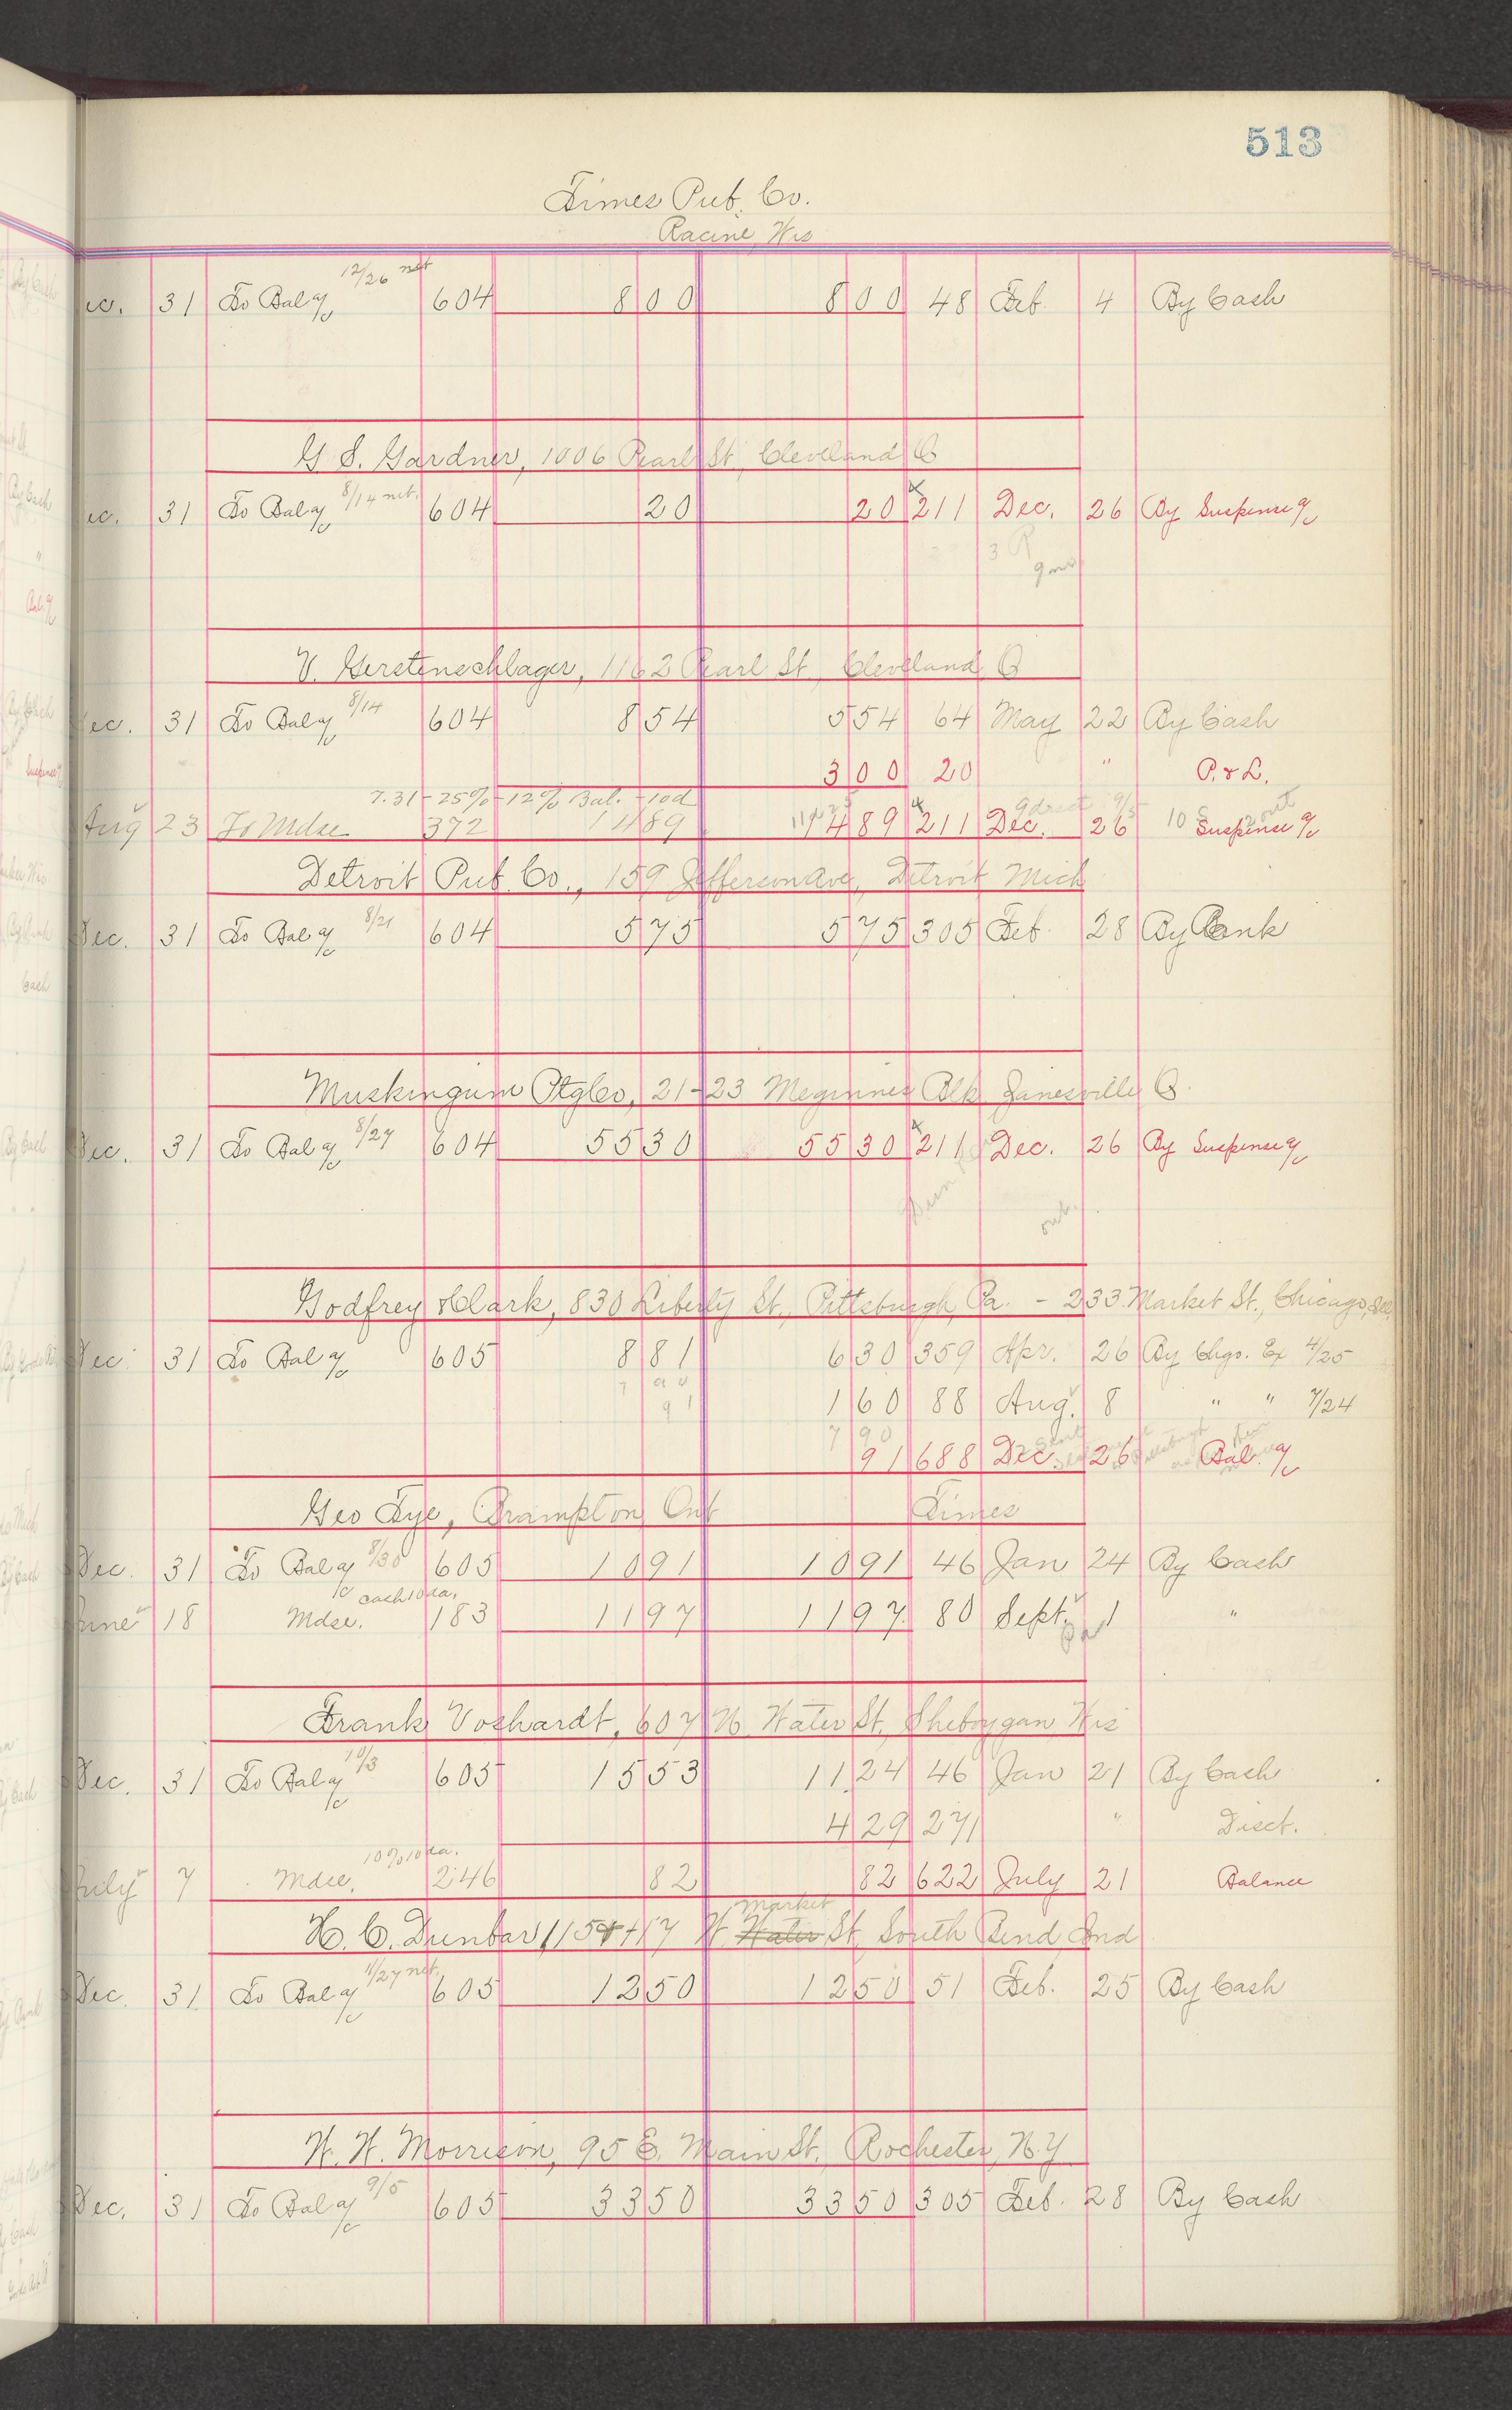 513
Times Pub. Co.
Racine Wis
ec. 31 To Bal a/c 12/26 net 604 8 00 8 00 48 Feb. 4 By Cash
G S. Gardner, 1006 Pearl St, Cleveland O
ec. 31 To Bal a/c 8/14 net. 604 20 20 211 Dec. 26 By Suspense a/c
V. Gerstenschlager, 1162 Pearl St, Cleveland O
ec. 31 To Bal a/c 8/14 604 8 54 5 54 64 May 22 By Cash
3 00 20 " P. & L.
7.31 - 25% - 12% Bal. - 10d
Aug 23 To Mdse 372 14 89 14 89 211 Dec. 26 Suspense a/c
Detroit Pub. Co., 159 Jefferson Ave, Detroit Mich
Dec. 31 To Bal a/c 8/21 604 5 75 5 75 305 Feb. 28 By Bank
Muskingum Ptg Co, 21-23 Meginnes Blk Janesville O.
Dec. 31 To Bal a/c 8/27 604 55 30 55 30 211 Dec. 26 By Suspense a/c
out.
Godfrey & Clark, 830 Liberty St., Pittsburgh, Pa. - 233 Market St., Chicago, Ill.
Dec. 31 To Bal a/c 605 8 81 6 30 359 Apr. 26 By Chgs. Ex 4/25
7 90
91
1 60 88 Aug. 8 " " 7/24
7 90
91 688 Dec 26 Bal. a/c
Geo Tye, Brampton Ont Times
Dec. 31 To Bal a/c 8/30 605 10 91 10 91 46 Jan 24 By Cash
cash 10 da.
June 18 Mdse. 183 11 97 11 97 80 Sept. 1 "
Frank Voshardt, 607 N. Water St, Sheboygan Wis
Dec. 31 To Bal a/c 10/3 605 15 53 11 24 46 Jan 21 By Cash
4 29 271 " Disct.
10% 10 da.
July 7 Mdse. 246 82 82 622 July 21 Balance
market
H. C. Dunbar, 115++17 W Water St, South Bend Ind
Dec. 31 To Bal a/c 11/27 net. 605 12 50 12 50 51 Feb. 25 By Cash
W. W. Morrison, 95 E. Main St., Rochester, N.Y.
Dec. 31 To Bal a/c 9/5 605 33 50 33 50 305 Feb. 28 By Cash